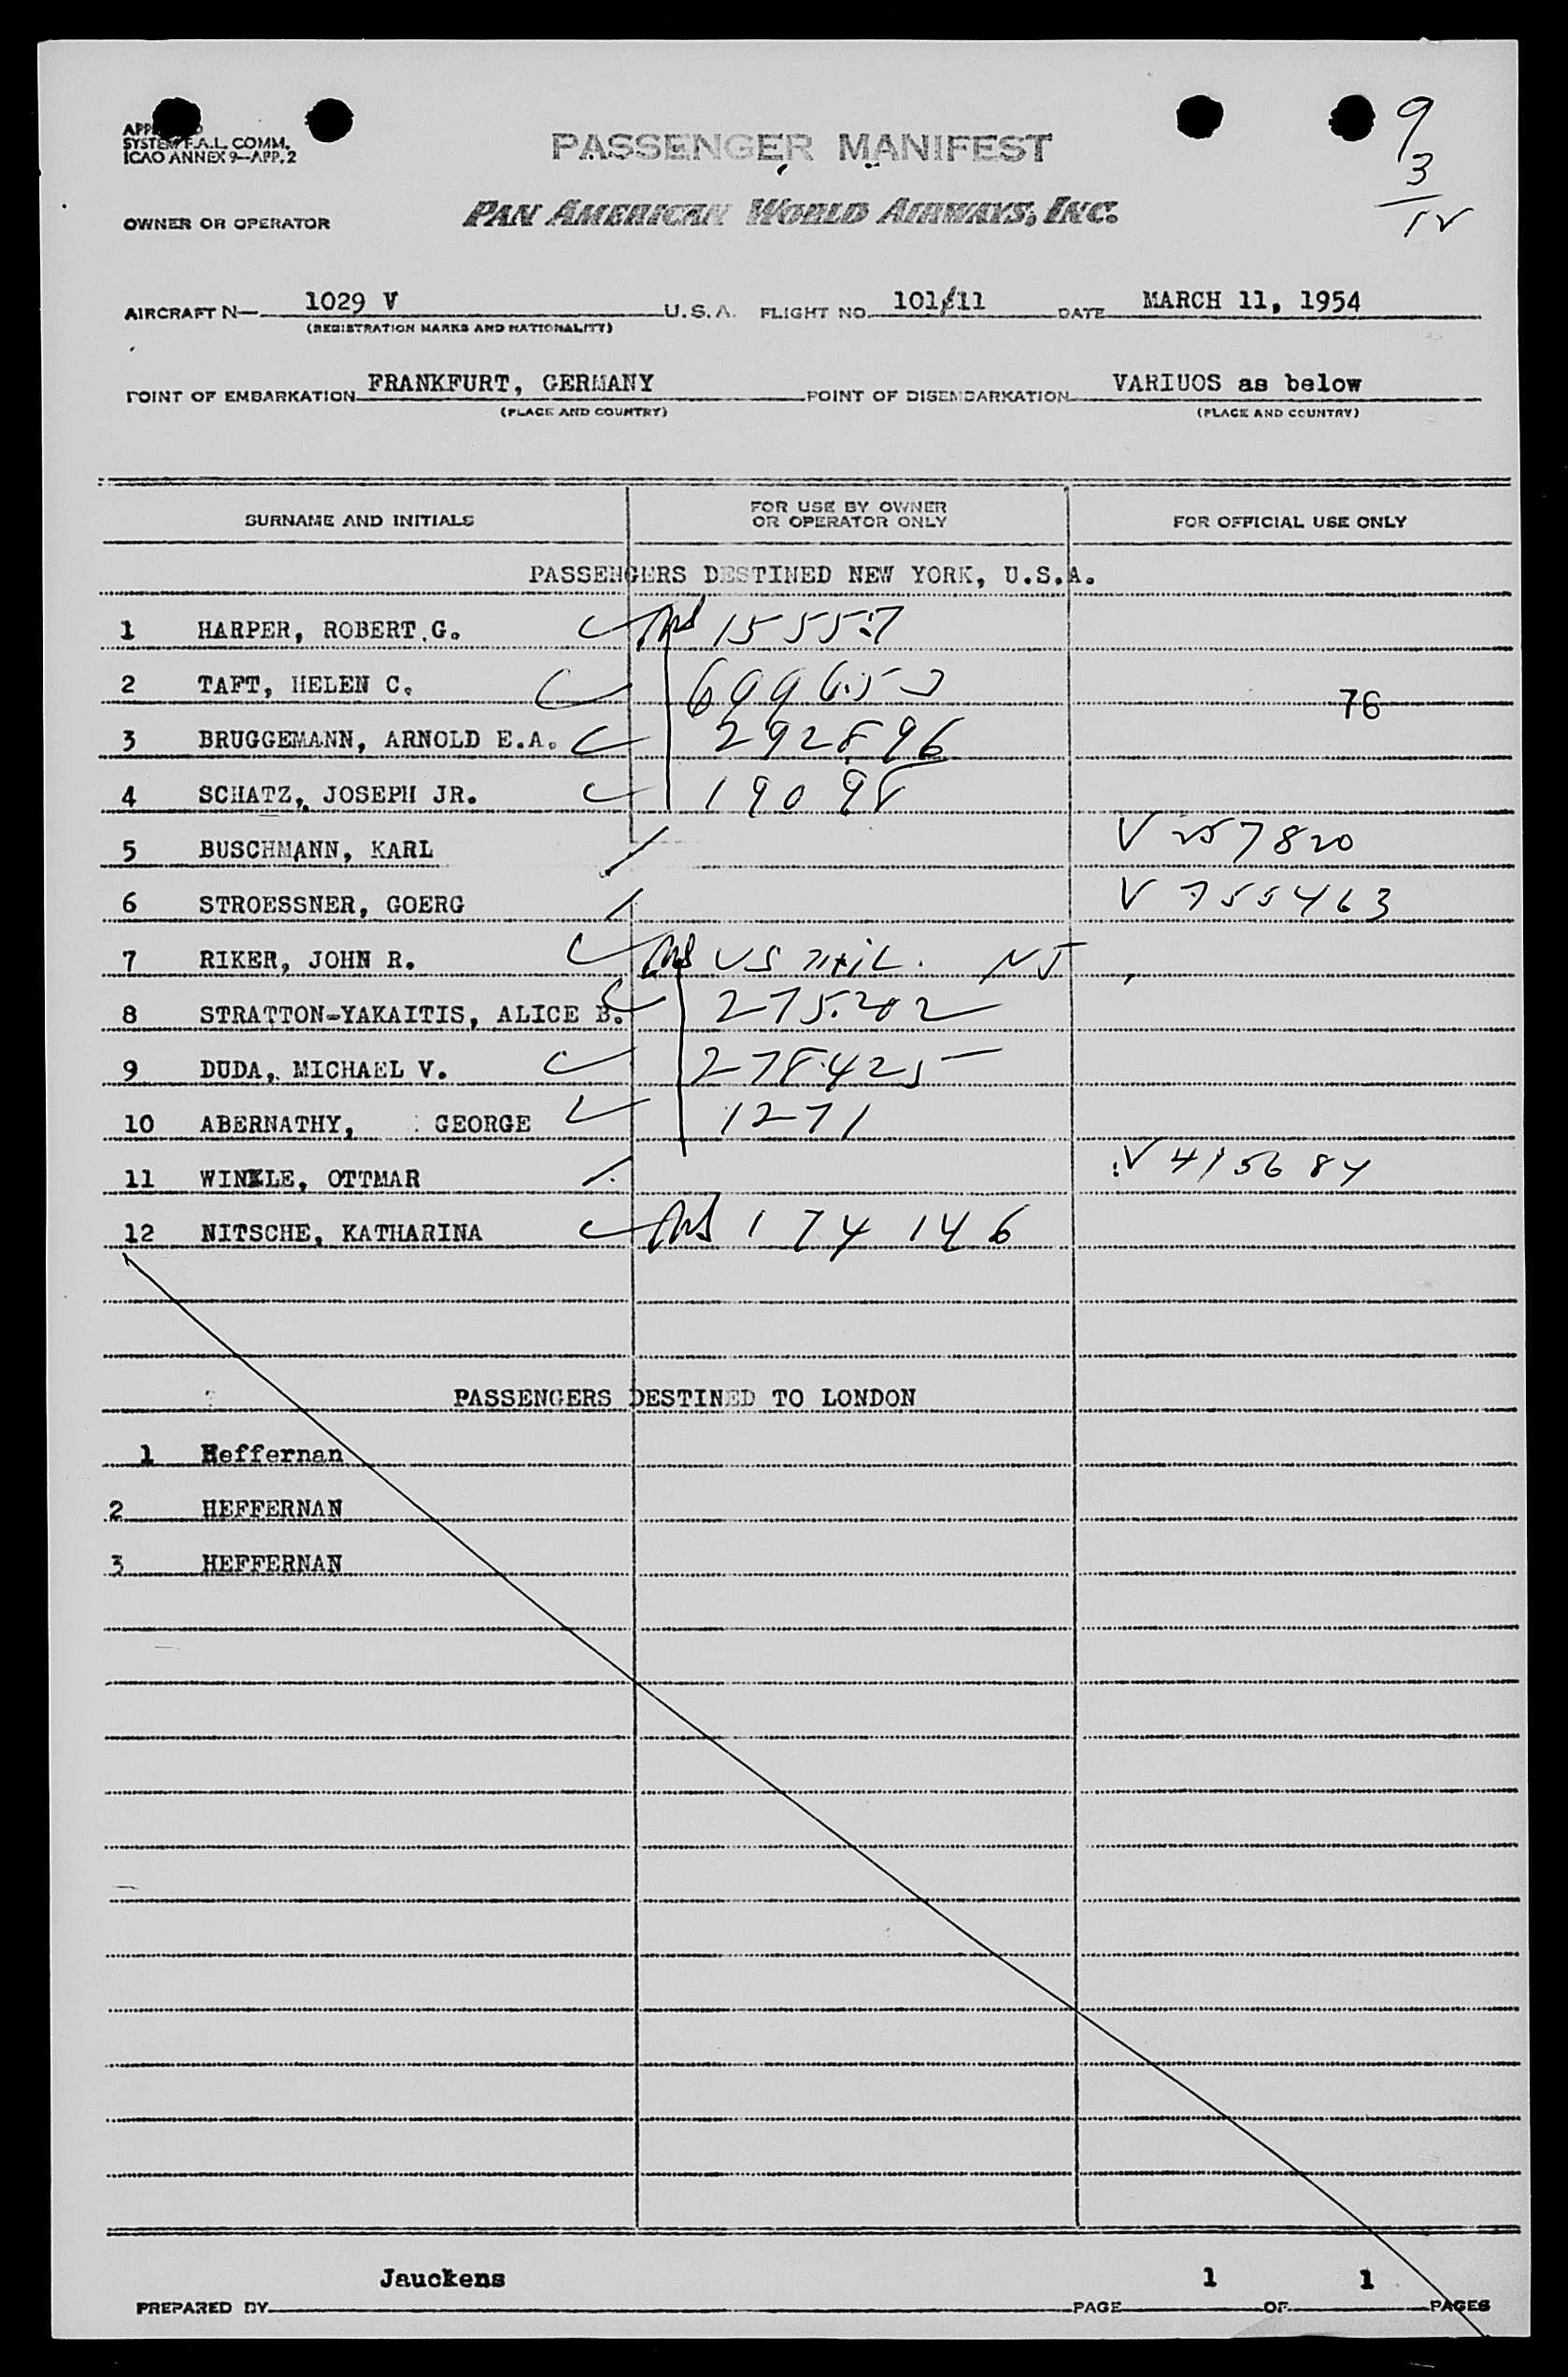 9
3
12
SYSTEM F.A.L. COMM.
ICAO ANNEX 9-APP. 2
PASSENGER MANIFEST
OWNER OR OPERATOR PAN AMERICAN WORLD AIRWAYS, INC.
AIRCRAFT N— 1029 V U.S.A. FLIGHT NO. 101/11 DATE MARCH 11, 1954
(REGISTRATION MARKS AND NATIONALITY)
POINT OF EMBARKATION FRANKFURT, GERMANY POINT OF DISEMBARKATION VARIUOS as below
(PLACE AND COUNTRY) (PLACE AND COUNTRY)
SURNAME AND INITIALS FOR USE BY OWNER OR OPERATOR ONLY FOR OFFICIAL USE ONLY
PASSENGERS DESTINED NEW YORK, U.S.A.
1 HARPER, ROBERT G. 15557
2 TAFT, HELEN C. 76
3 BRUGGEMANN, ARNOLD E.A. 292896
4 SCHATZ, JOSEPH JR. 19098
5 BUSCHMANN, KARL V 257820
6 STROESSNER, GOERG V 755463
7 RIKER, JOHN R. US NJ
8 STRATTON-YAKAITIS, ALICE B. 275202
9 DUDA, MICHAEL V. 278425
10 ABERNATHY, GEORGE 1271
11 WINKLE, OTTMAR V 415684
12 NITSCHE, KATHARINA 174146
PASSENGERS DESTINED TO LONDON
1 Heffernan
2 HEFFERNAN
3 HEFFERNAN
Jauckens 1 1
PREPARED BY PAGE OF PAGES